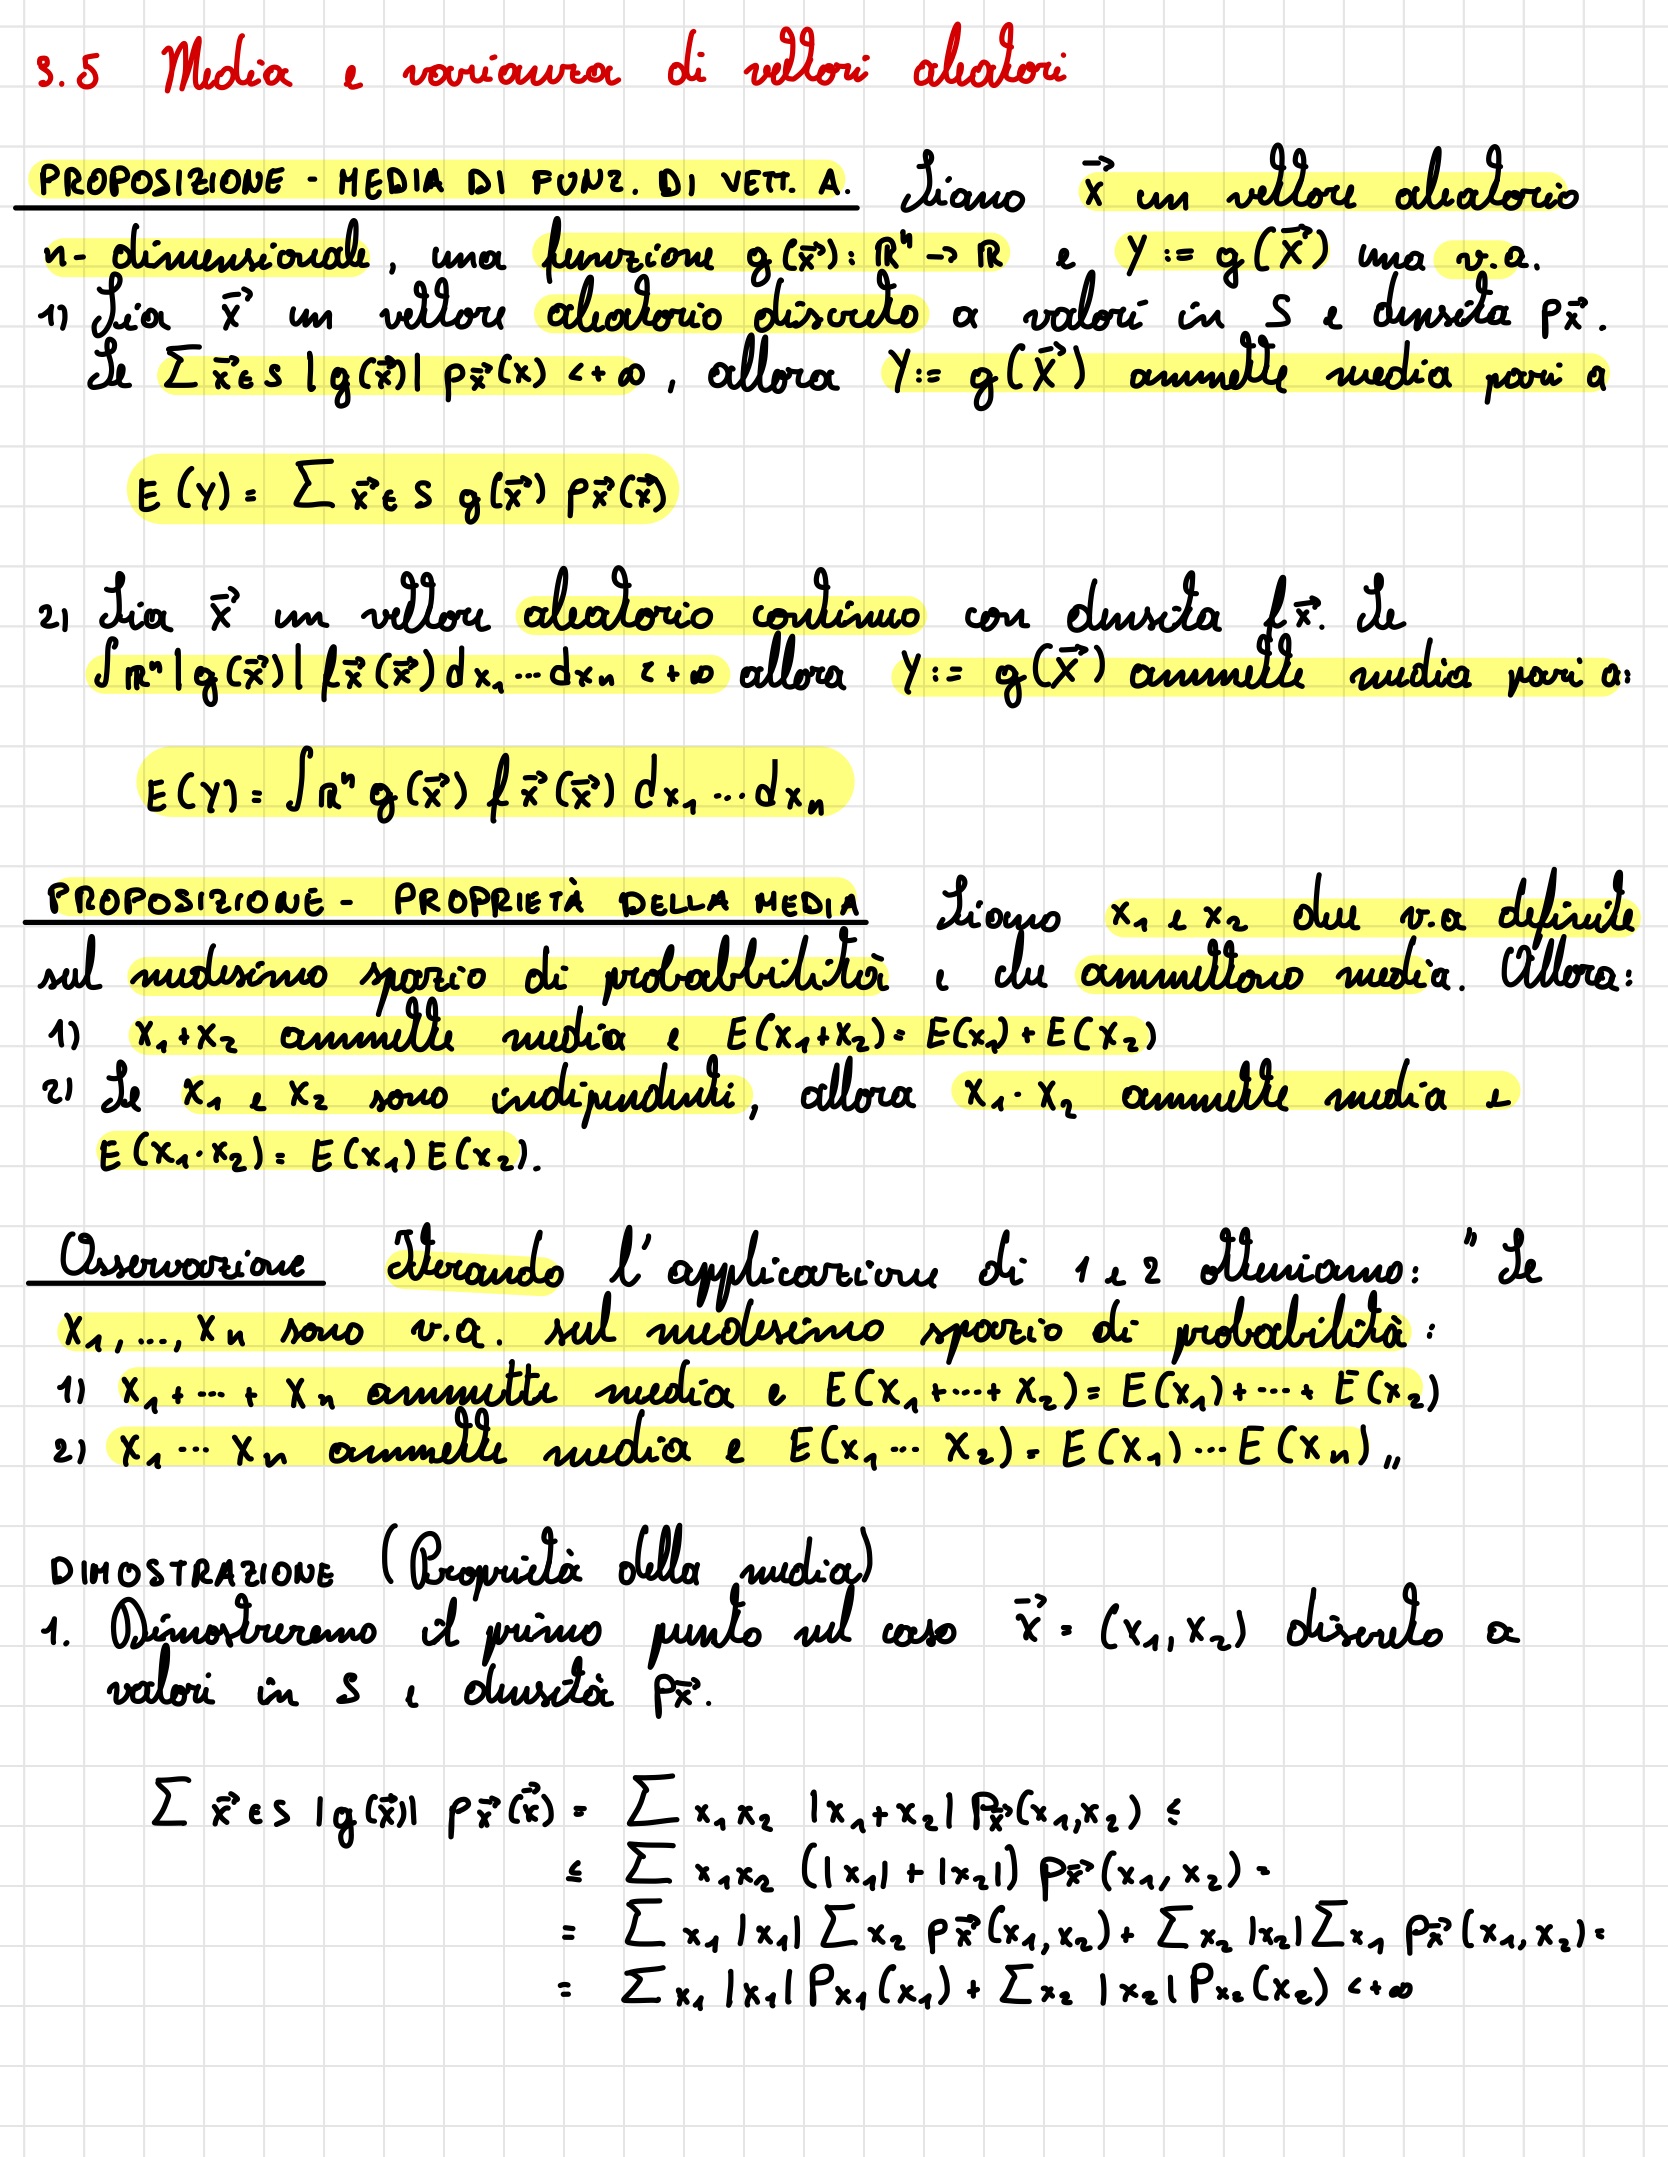 3.5 Media e varianza di vettori aleatori
PROPOSIZIONE - MEDIA DI FUNZ. DI VETT. A. Siano x⃗ un vettore aleatorio
n-dimensionale, una funzione g(x⃗): ℝⁿ -> ℝ e Y := g(X⃗) una v.a.
1) Sia x⃗ un vettore aleatorio discreto a valori in S e densita px⃗.
Se ∑ x⃗∈S |g(x⃗)| px⃗(x) <+∞, allora Y:= g(X⃗) ammette media pari a
E(Y) = ∑ x⃗∈S g(x⃗) px⃗(x⃗)
2) Sia x⃗ un vettore aleatorio continuo con densita fx⃗. Se
∫ℝⁿ |g(x⃗)| fx⃗(x⃗) dx₁...dxₙ <+∞ allora Y:= g(X⃗) ammette media pari a:
E(Y) = ∫ℝⁿ g(x⃗) fx⃗(x⃗) dx₁...dxₙ
PROPOSIZIONE - PROPRIETÀ DELLA MEDIA Siano x₁ e x₂ due v.a definite
sul medesimo spazio di probabbilità e che ammettono media. Allora:
1) x₁+x₂ ammette media e E(x₁+x₂) = E(x₁) + E(x₂)
2) Se x₁ e x₂ sono indipendenti, allora x₁·x₂ ammette media e
E(x₁·x₂) = E(x₁)E(x₂).
Osservazione Iterando l'applicazione di 1 e 2 otteniamo: "Se
x₁,...,xₙ sono v.a. sul medesimo spazio di probabilità:
1) x₁+...+xₙ ammette media e E(x₁+...+x₂) = E(x₁)+...+E(x₂)
2) x₁...xₙ ammette media e E(x₁...x₂) = E(x₁)...E(xₙ)„
DIMOSTRAZIONE (Proprietà della media)
1. Dimostreremo il primo punto nel caso x⃗ = (x₁,x₂) discreto a
valori in S e densità px⃗.
∑ x⃗∈S |g(x⃗)| px⃗(x⃗) = ∑ x₁x₂ |x₁+x₂| px⃗(x₁,x₂) ≤
≤ ∑ x₁x₂ (|x₁|+|x₂|) px⃗(x₁,x₂) =
= ∑ x₁ |x₁| ∑ x₂ px⃗(x₁,x₂) + ∑ x₂ |x₂| ∑ x₁ px⃗(x₁,x₂) =
= ∑ x₁ |x₁| Px₁(x₁) + ∑ x₂ |x₂| Px₂(x₂) <+∞